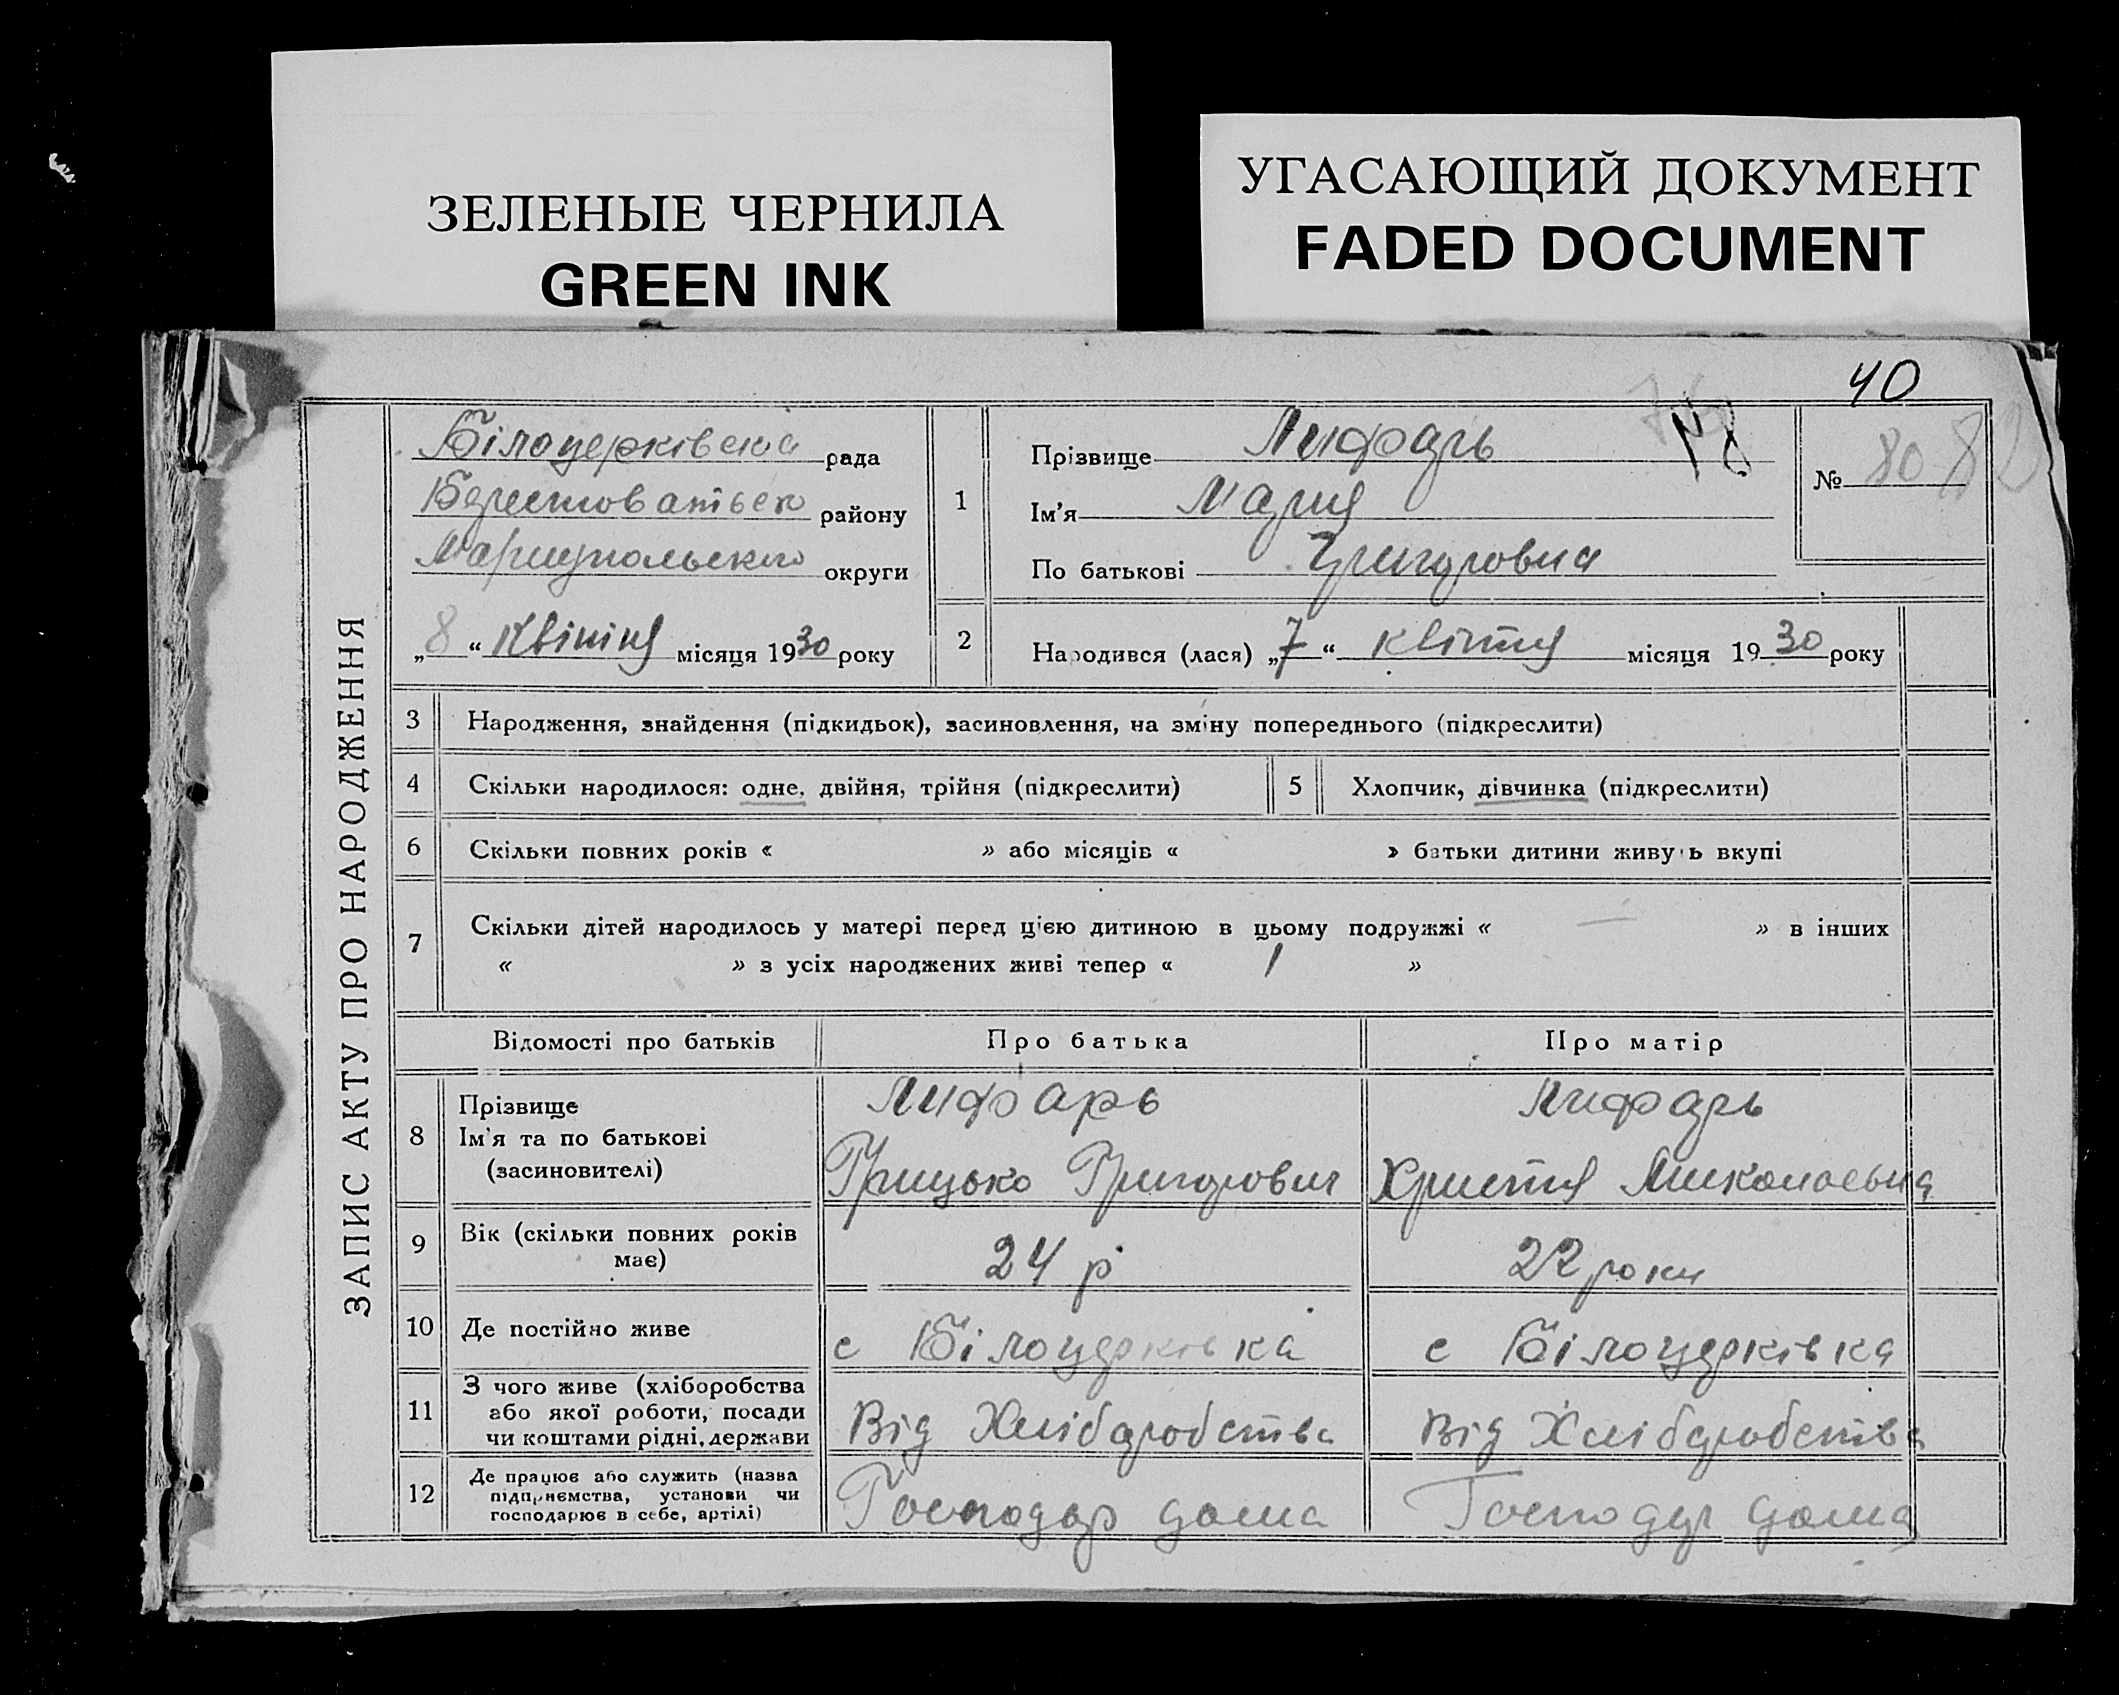 ЗЕЛЕНЫЕ ЧЕРНИЛА
GREEN INK
УГАСАЮЩИЙ ДОКУМЕНТ
FADED DOCUMENT
40
ЗАПИС АКТУ ПРО НАРОДЖЕННЯ
Білоцерківська рада
району
Маріупольского округи
„8“ Квітня місяця 1930 року
1
Прізвище Лифарь
78
Ім’я Мария
По батькові Григоровна
№ 80 82
2 Народився (лася) „7“ квітня місяця 1930 року
3 Народження, знайдення (підкидьок), засиновлення, на зміну попереднього (підкреслити)
4 Скільки народилося: одне, двійня, трійня (підкреслити) 5 Хлопчик, дівчинка (підкреслити)
6 Скільки повних років « » або місяців « » батьки дитини живуть вкупі
7 Скільки дітей народилось у матері перед цією дитиною в цьому подружжі « — » в інших
« » з усіх народжених живі тепер « 1 »
Відомості про батьків Про батька Про матір
8 Прізвище
Ім’я та по батькові
(засиновителі)
Лифарь
Грицько Григорович
Лифарь
Христя Миколаевна
9 Вік (скільки повних років має) 24 р 22 роки
10 Де постійно живе с Білоцерківка с Білоцерківка
11 З чого живе (хліборобства
або якої роботи, посади
чи коштами рідні, держави
Від Хліборобства Від Хліборобства
12 Де працює або служить (назва
підприємства, установи чи
господарює в себе, артілі)
Господар дома Господар дома